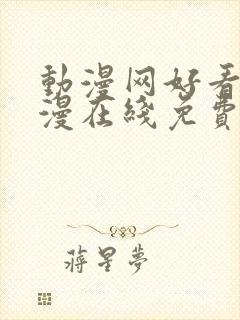 動漫网好看
漫在綫免費
蔣星夢